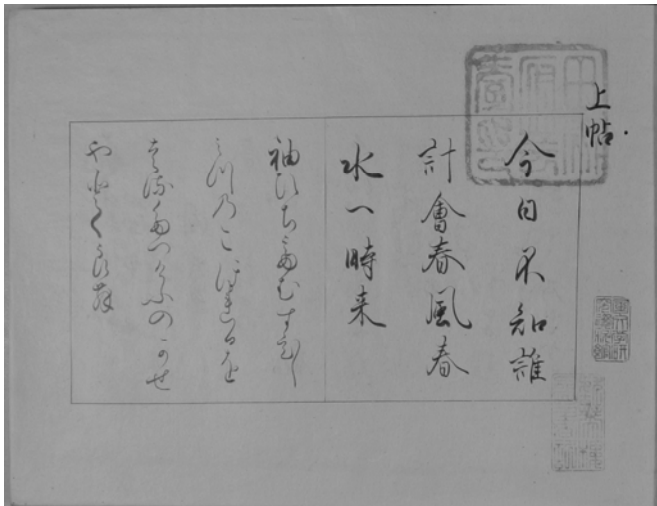 上帖
今日不知誰
計會春風春
水一時来
袖ひちてむすひし
みつのこほれるを
はるたつけふのかせ
やとくらむ